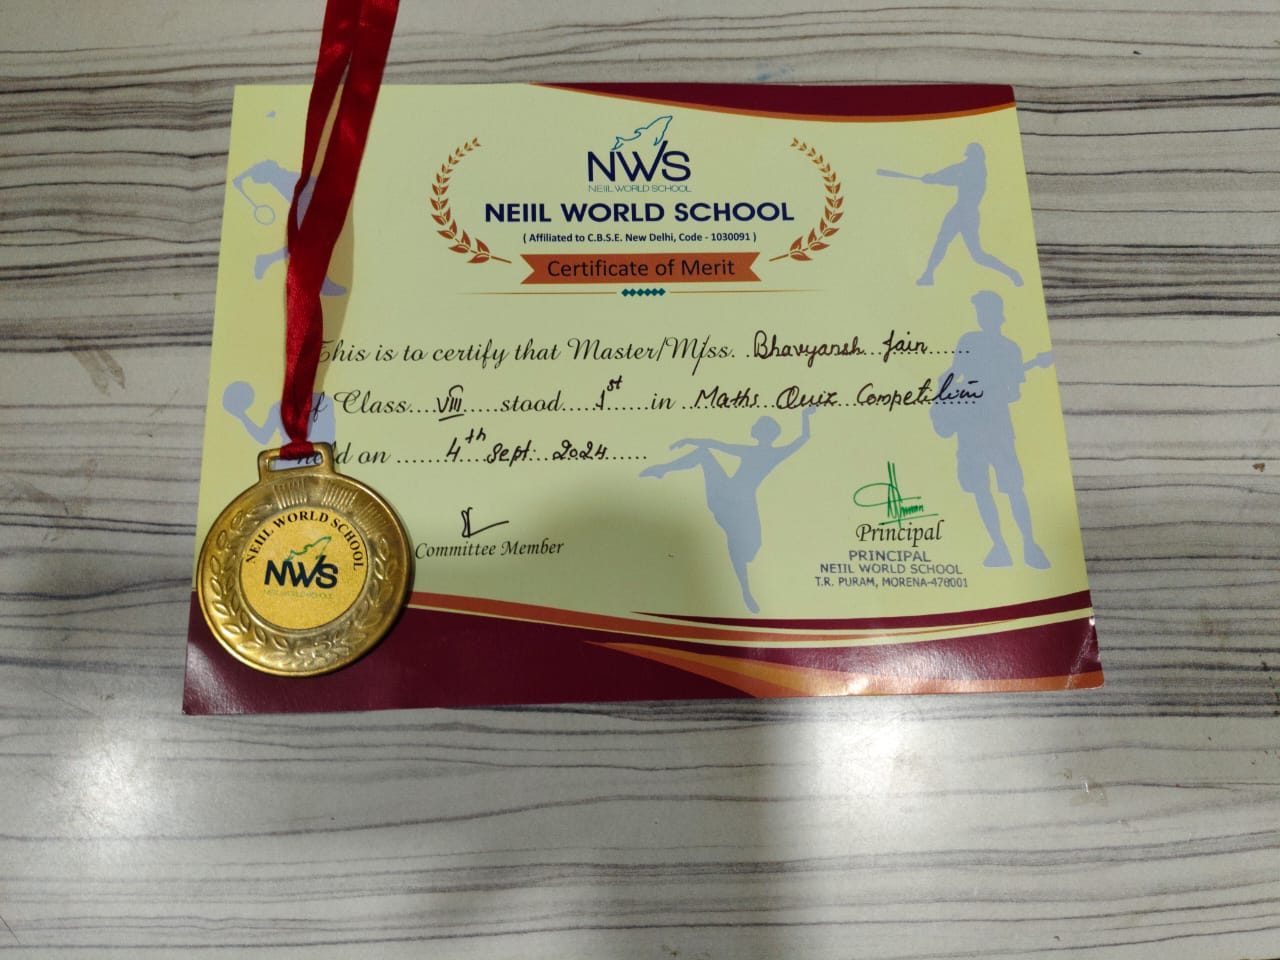 NWS
NEIIL WORLD SCHOOL
NEIIL WORLD SCHOOL
( Affiliated to C.B.S.E. New Delhi, Code - 1030091 )
Certificate of Merit
This is to certify that Master/Miss. Bhavyansh Jain
of Class VIII stood 1st in Maths Quiz Competition
held on 4th Sept. 2024
Committee Member
Principal
PRINCIPAL
NEIIL WORLD SCHOOL
T.R. PURAM, MORENA-476001
NEIIL WORLD SCHOOL
NWS
NEIIL WORLD SCHOOL